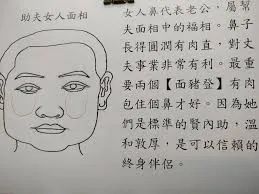 助夫女人面相
女人鼻代表老公，屬幫
夫面相中的福相。鼻子
長得圓潤有肉直，對丈
夫事業非常有利。最重
要兩個【面豬登】有肉
包住個鼻才好。因為她
們是標準的賢內助，溫
和敦厚，是可以信賴的
終身伴侶。